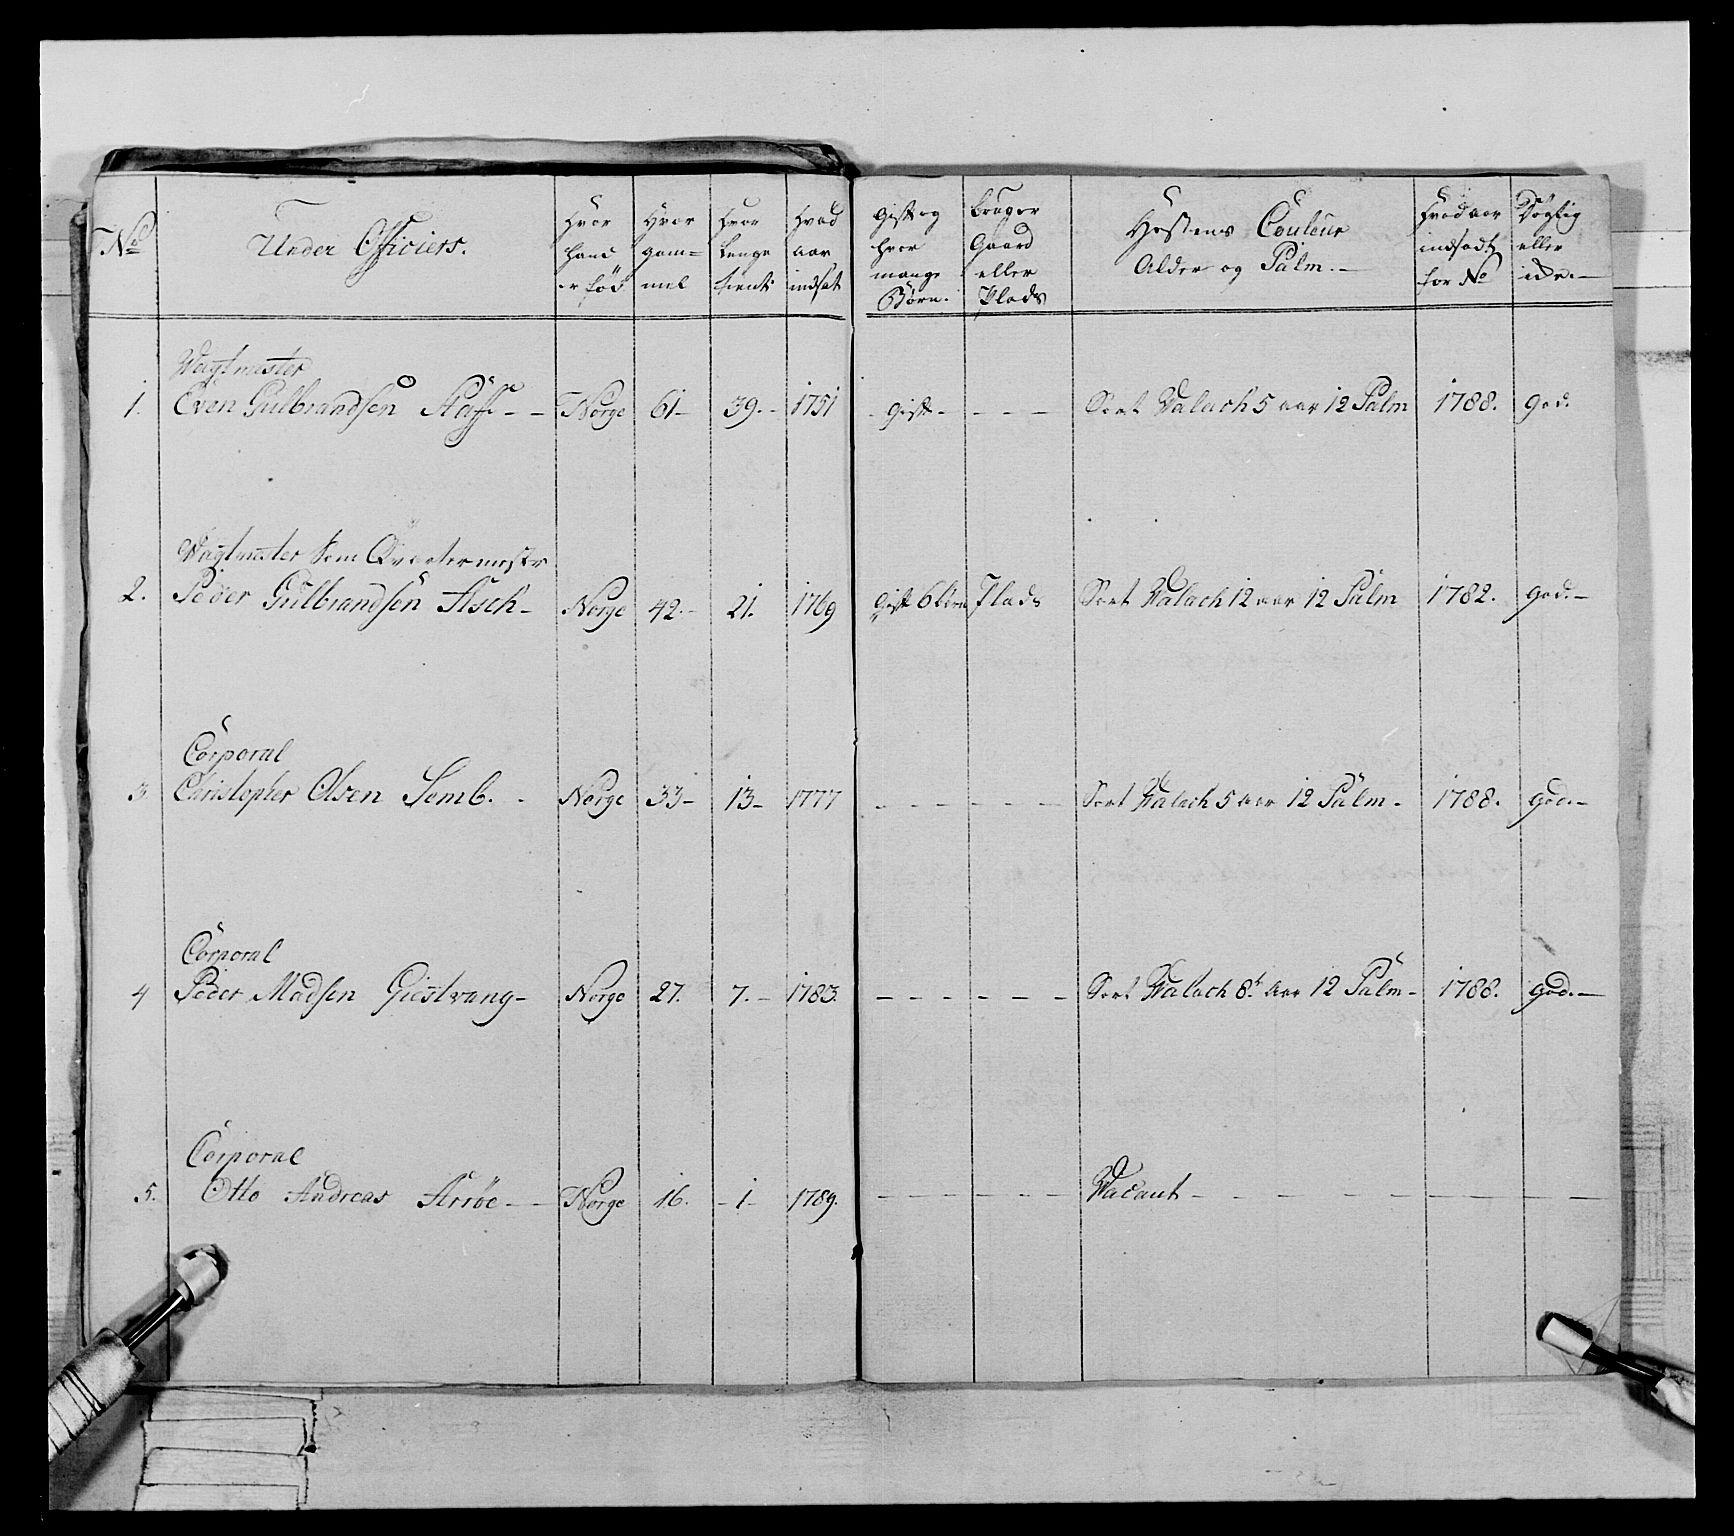 No
Under Officiers.
Hvor hand er föd
Hvor gam= mel
Hvor lenge tient
Hvad aar indsat
Gift og hvor mange Börn.
bruger Gaard eller Plads
Hestens Couleur Alder og Palm.-
Hvad aar indsadt for No
Dögtig eller icke.-
Wagtmester
1. Even Gulbrandsen - - Norge 61- 39.- 1751 - Gift - - - - Sort Valach 5 aar 12 Palm 1788. god.
Wagtmester som Qvartermester
2. Peder Gulbrandsen Asch- Norge 42.- 21. 1769 Gift 6 börn Plads Sort Valach 12 aar 12 Palm 1782. god.-
Corporal
3 Christopher Olsen Semb. - Norge 33- 13- 1777 - - - - - - Sort Valach 5 aar 12 Palm - 1788. god.-
Corporal
4 Peder Madsen Giestvang- Norge 27. 7.- 1783. - - - - - - Sort Valach 8t aar 12 Palm- 1788. god.-
Corporal
5. Otto Andreas Arröe - - Norge 16. - 1 - 1789. - - - - - - Vacant - - - - - - - -